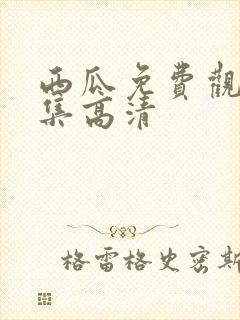 西瓜免費觀
集高清
格雷格史密斯